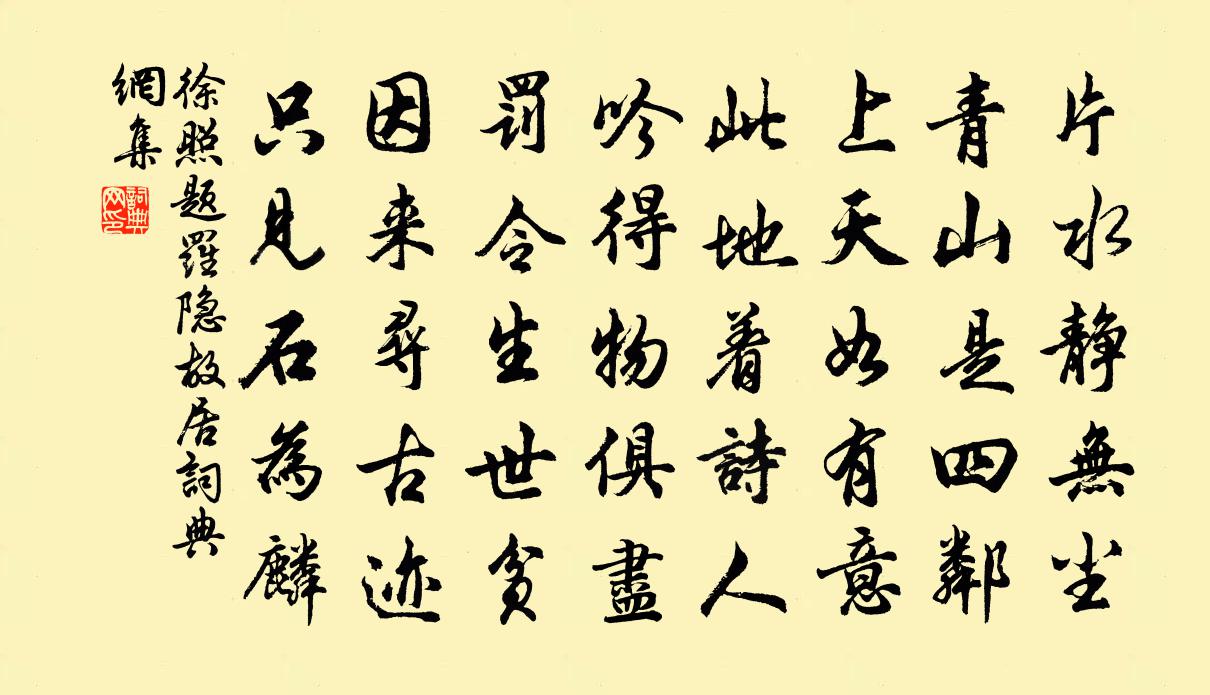 片水静無尘
青山是四鄰
上天如有意
此地着詩人
吟得物俱盡
罰令生世貧
因来尋古迹
只見石為麟
徐照題羅隐故居詞典
網集
詞典
网印